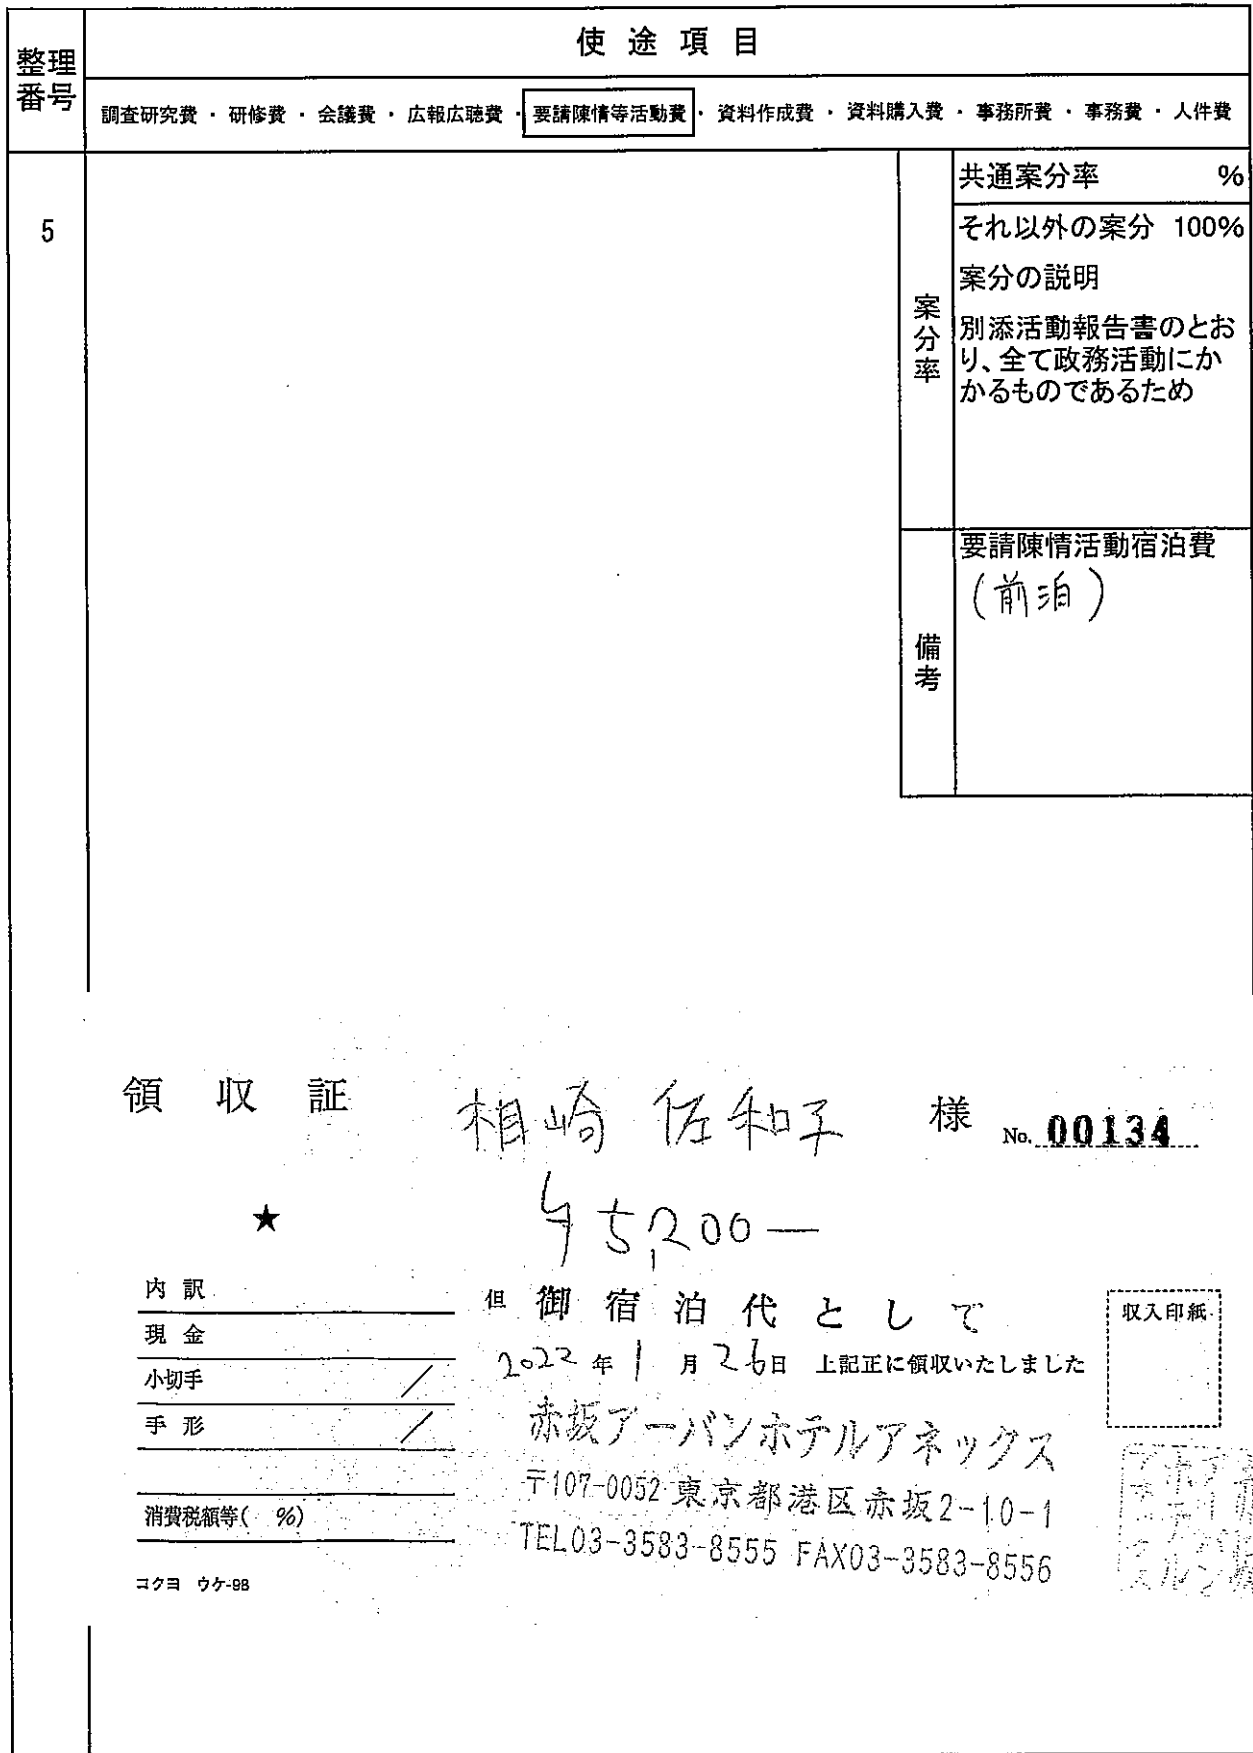 整理番号
使途項目
調査研究費 ・ 研修費 ・ 会議費 ・ 広報広聴費 ・ 要請陳情等活動費 ・ 資料作成費 ・ 資料購入費 ・ 事務所費 ・ 事務費 ・ 人件費
5
案分率
共通案分率 %
それ以外の案分 100%
案分の説明
別添活動報告書のとお
り、全て政務活動にか
かるものであるため
備考
要請陳情活動宿泊費
(前泊)
領収証 相崎 佐和子 様 No. 00134
★ ¥5,200—
内訳
現金
小切手
手形
消費税額等( %)
コクヨ ウケ-98
但 御宿泊代として
2022年1月26日 上記正に領収いたしました
収入印紙
赤坂アーバンホテルアネックス
〒107-0052 東京都港区赤坂2-10-1
TEL03-3583-8555 FAX03-3583-8556